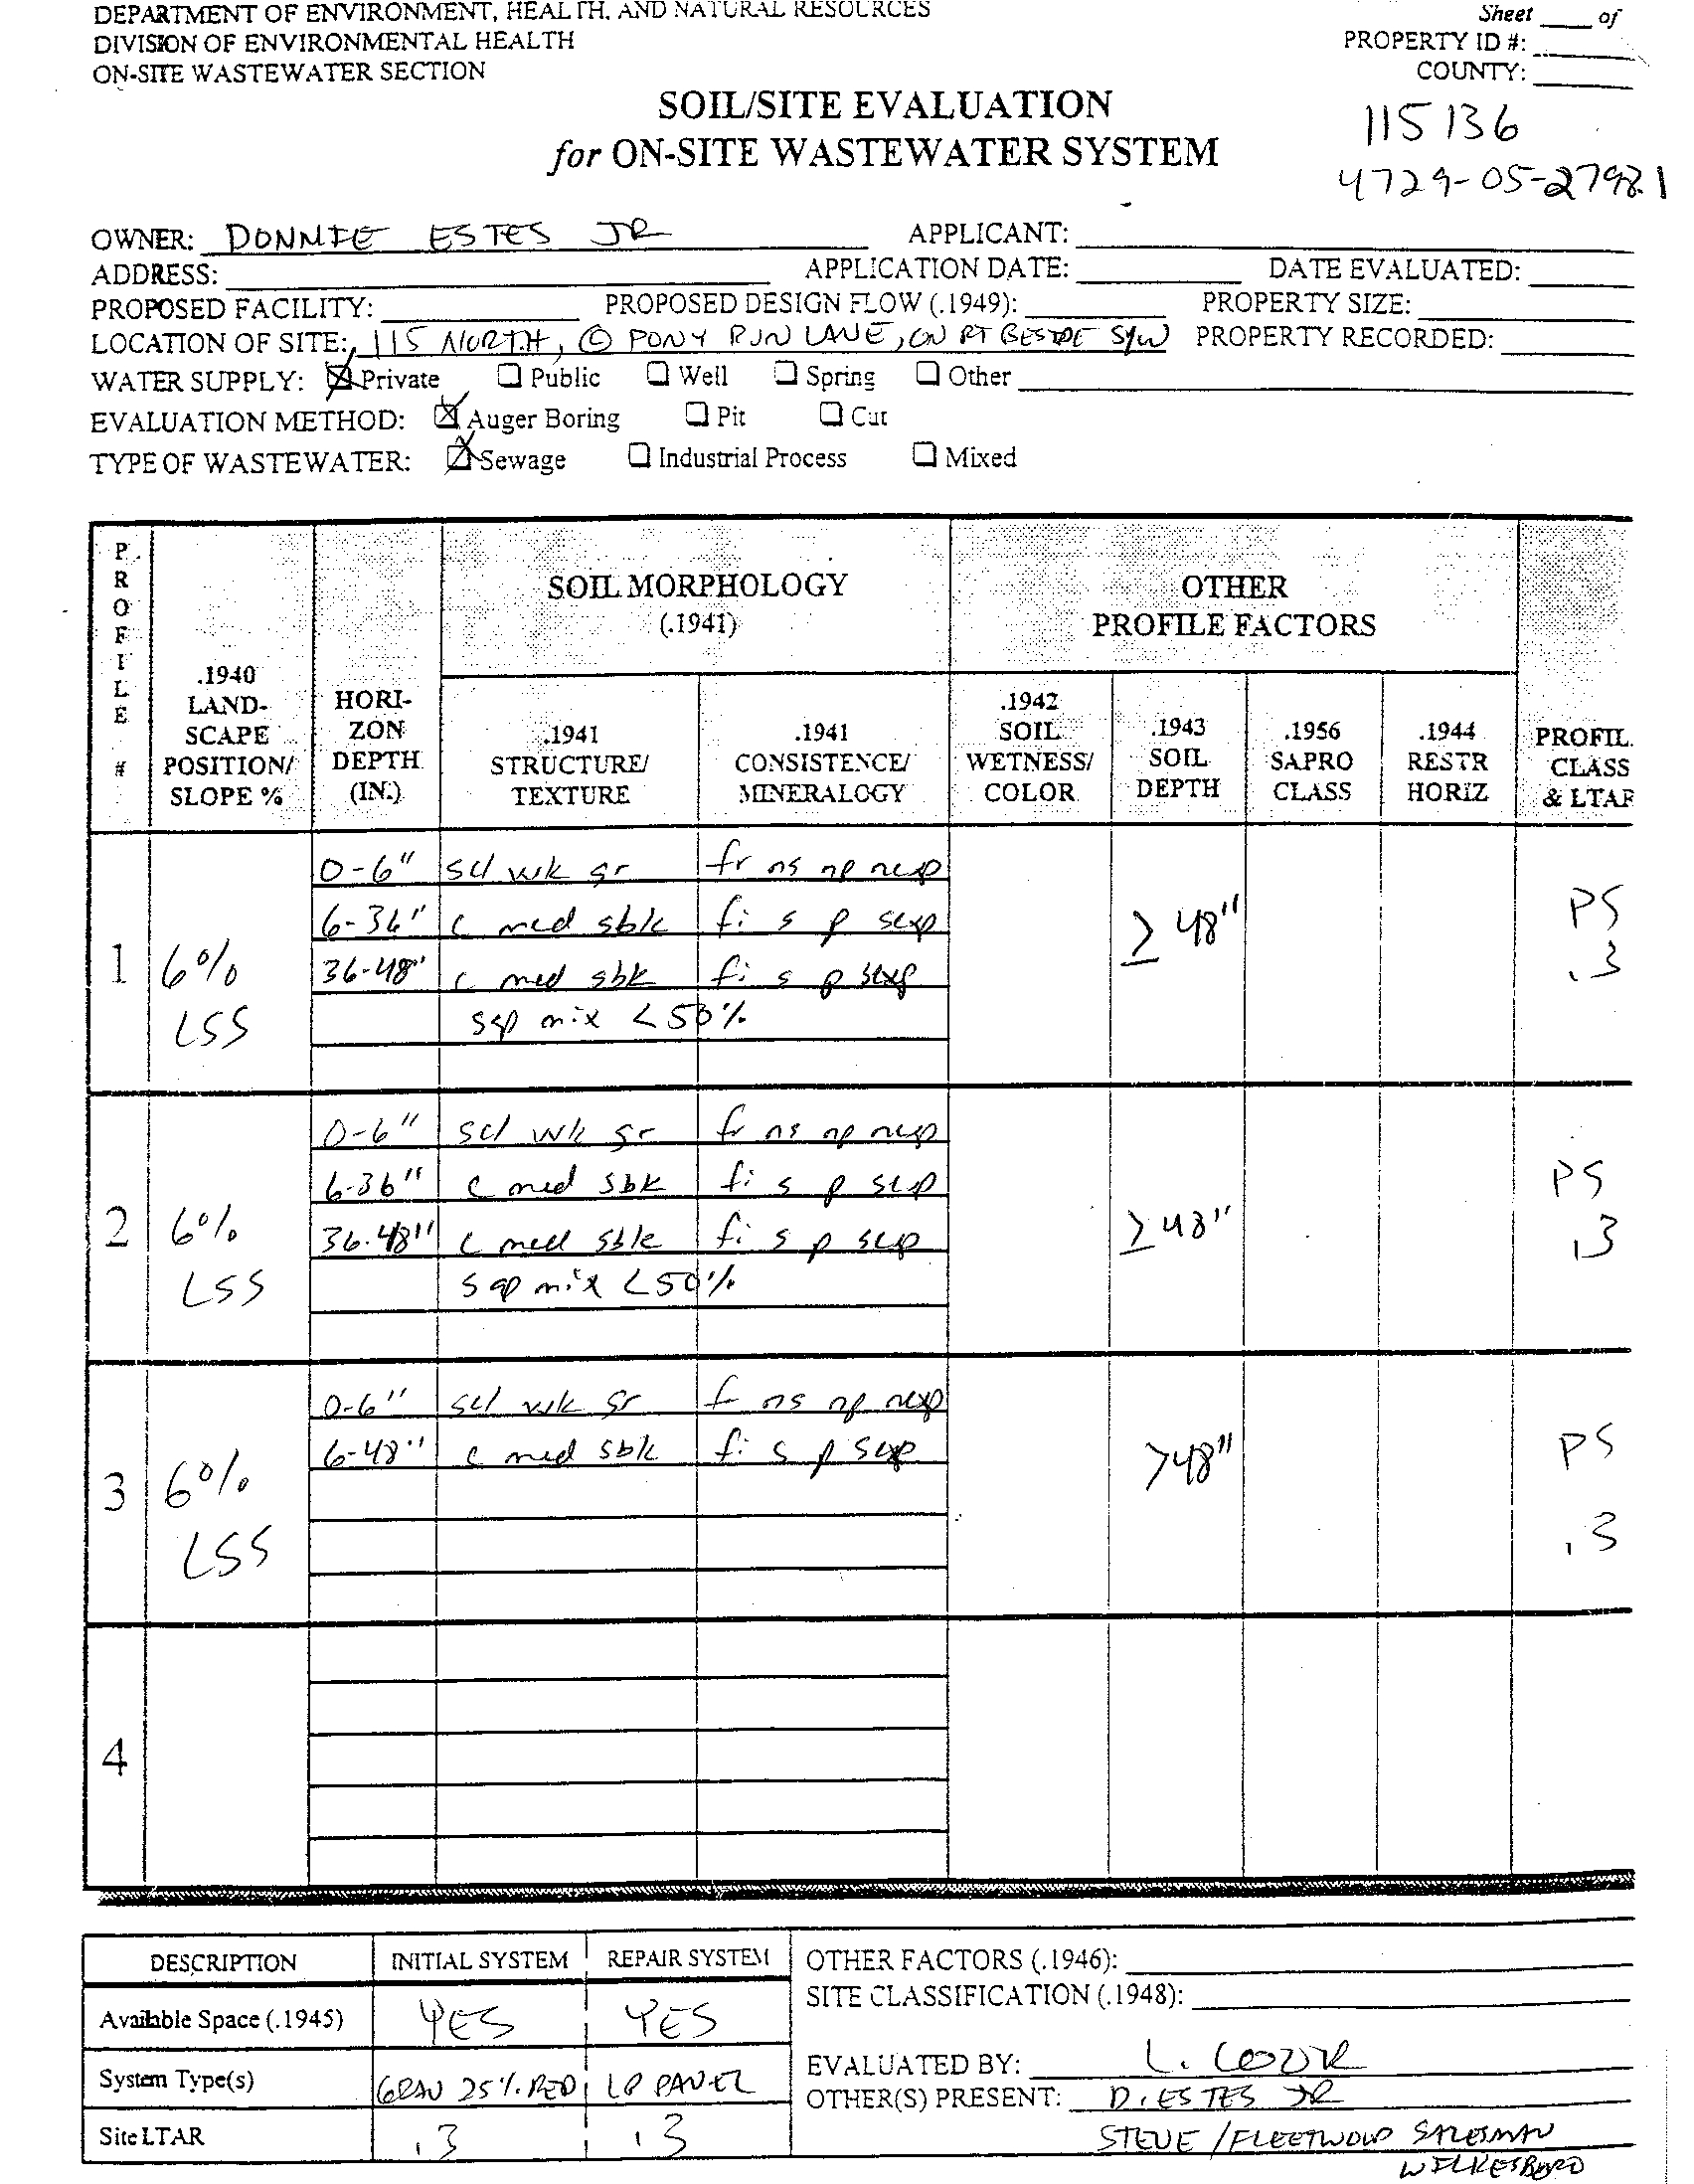 DEPARTMENT OF ENVIRONMENT, HEALTH, AND NATURAL RESOURCES
DIVISION OF ENVIRONMENTAL HEALTH
ON-SITE WASTEWATER SECTION
Sheet ____ of
PROPERTY ID #:
COUNTY:
SOIL/SITE EVALUATION
for ON-SITE WASTEWATER SYSTEM
115136
4729-05-2798.1
OWNER: DONNIE ESTES JR APPLICANT:
ADDRESS: APPLICATION DATE: DATE EVALUATED:
PROPOSED FACILITY: PROPOSED DESIGN FLOW (.1949): PROPERTY SIZE:
LOCATION OF SITE: 115 NORTH, @ PONY RUN LANE, ON RT BESIDE S/W PROPERTY RECORDED:
WATER SUPPLY: ☒ Private ☐ Public ☐ Well ☐ Spring ☐ Other
EVALUATION METHOD: ☒ Auger Boring ☐ Pit ☐ Cut
TYPE OF WASTEWATER: ☒ Sewage ☐ Industrial Process ☐ Mixed
PROFILE #
.1940 LAND-SCAPE POSITION/ SLOPE %
HORI-ZON DEPTH (IN.)
SOIL MORPHOLOGY (.1941)
OTHER PROFILE FACTORS
.1941 STRUCTURE/ TEXTURE
.1941 CONSISTENCE/ MINERALOGY
.1942 SOIL WETNESS/ COLOR
.1943 SOIL DEPTH
.1956 SAPRO CLASS
.1944 RESTR HORIZ
PROFIL. CLASS & LTAR
0-6" scl wk gr fr ns np nexp
6-36" c med sbk fi s p sexp
1 6% LSS
36-48" c med sbk fi s p sexp
sap mix <50%
≥ 48"
PS .3
0-6" scl wk gr fr ns np nexp
6-36" c med sbk fi s p sexp
2 6% LSS
36-48" c med sbk fi s p sexp
sap mix <50%
≥48"
PS .3
0-6" scl wk gr fr ns np nexp
6-48" c med sbk fi s p sexp
3 6% LSS
>48"
PS .3
4
DESCRIPTION INITIAL SYSTEM REPAIR SYSTEM
Available Space (.1945) YES YES
System Type(s) GRAV 25% RED LP PANEL
Site LTAR .3 .3
OTHER FACTORS (.1946):
SITE CLASSIFICATION (.1948):
EVALUATED BY: L.
OTHER(S) PRESENT: D. ESTES JR
STEVE / FLEETWOOD SALESMAN
WILKESBORO